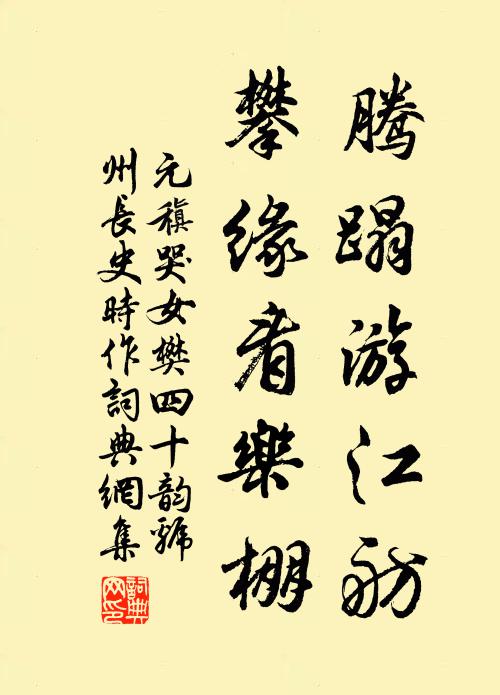 腾蹋游江舫
攀缘看樂棚
元稹哭女樊四十韵虢
州長史時作詞典網集
詞典网印